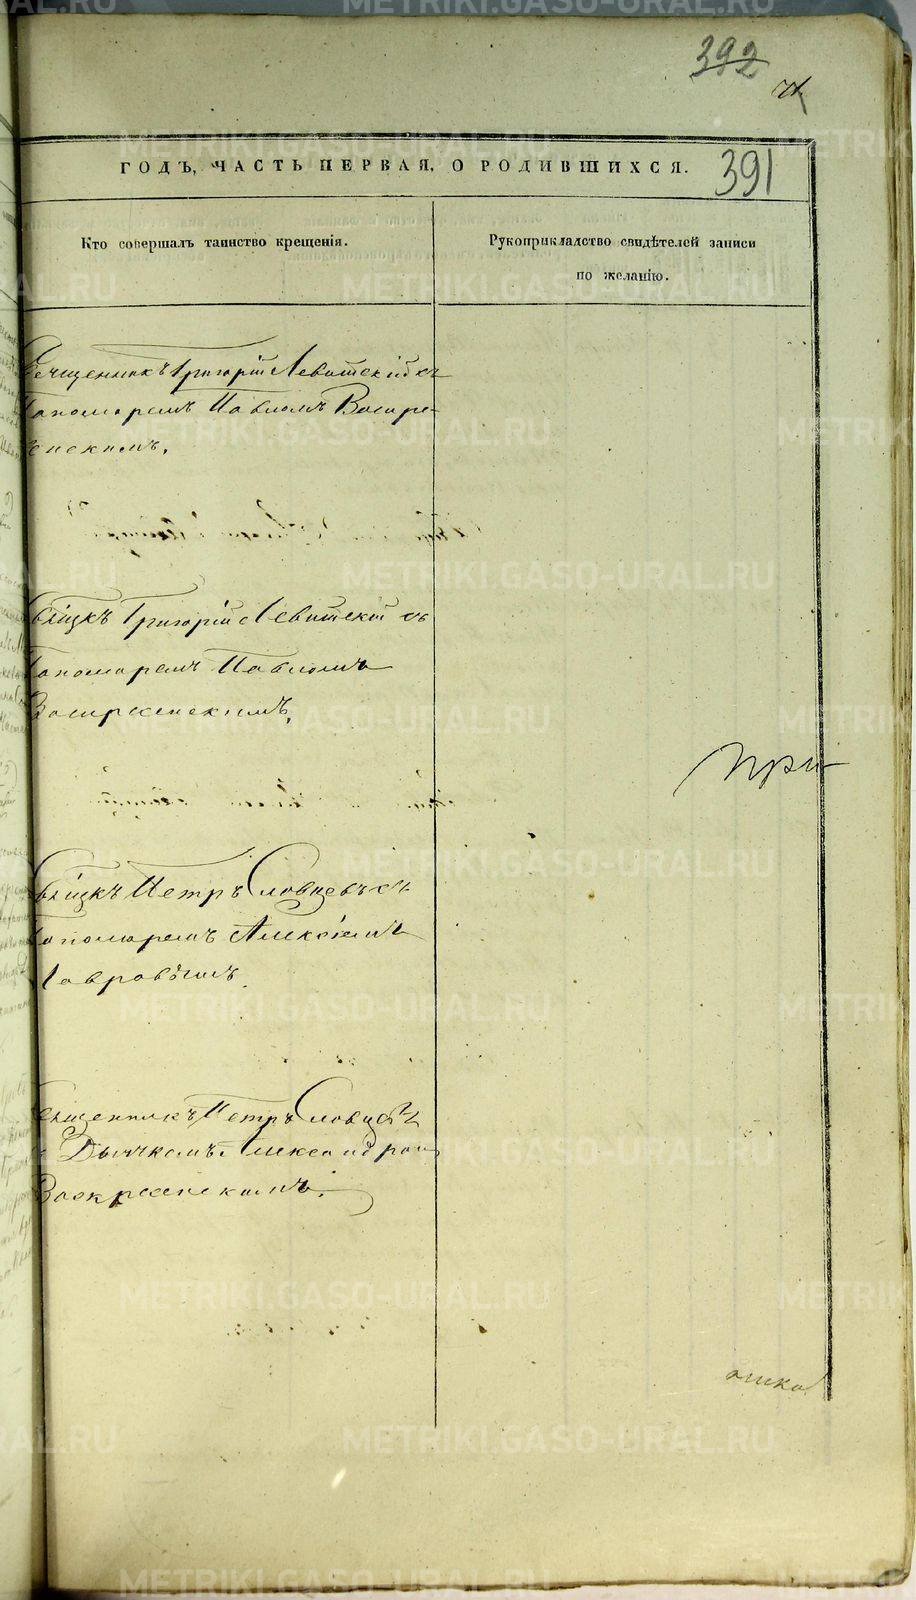 392
391
ГОДЪ, ЧАСТЬ ПЕРВАЯ, О РОДИВШИХСЯ.
Кто совершалъ таинство крещенія.
Рукоприкладство свидѣтелей записи
по желанію.
Священникъ Григорій Левитскій съ
Пономаремъ Павломъ Воскре-
сенскимъ.
Свящкъ Григорій Левитскій съ
Пономаремъ Павломъ
Воскресенскимъ.
при
Свящкъ Петръ Словцевъ съ
Пономаремъ Алексѣемъ
Лавровымъ.
Священникъ Петръ Словцевъ
съ Дьячкомъ Александромъ
Воскресенскимъ.
METRIKI.GASO-URAL.RU